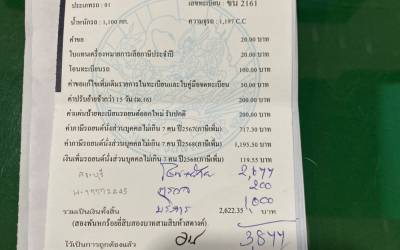 ประเภทรถ : 01 เลขทะเบียน : ขน 2161
น้ำหนักรถ : 1,100 กก. ความจุรถ : 1,197 C.C
ค่าขอ 20.00 บาท
ใบแทนเครื่องหมายการเสียภาษีประจำปี 20.00 บาท
โอนทะเบียนรถ 100.00 บาท
ค่าขอแก้ไขเพิ่มเติมรายการในทะเบียนและใบคู่มือจดทะเบียน 50.00 บาท
ค่าปรับย้ายช้ากว่า 15 วัน (ม.16) 200.00 บาท
ค่าแผ่นป้ายทะเบียนรถยนต์ออกใหม่ รับปกติ 200.00 บาท
ค่าภาษีรถยนต์นั่งส่วนบุคคลไม่เกิน 7 คน ปี2567(ภาษีเพิ่ม) 717.30 บาท
ค่าภาษีรถยนต์นั่งส่วนบุคคลไม่เกิน 7 คน ปี2568(ภาษีเพิ่ม) 1,195.50 บาท
เงินเพิ่มรถยนต์นั่งส่วนบุคคลไม่เกิน 7 คน ปี2568(ภาษีเพิ่ม) 119.55 บาท
2,677
200
1,000
รวมเป็นเงินทั้งสิ้น 2,622.35 บาท
(สองพันหกร้อยยี่สิบสองบาทสามสิบห้าสตางค์) 3877
ไว้เป็นการถูกต้องแล้ว